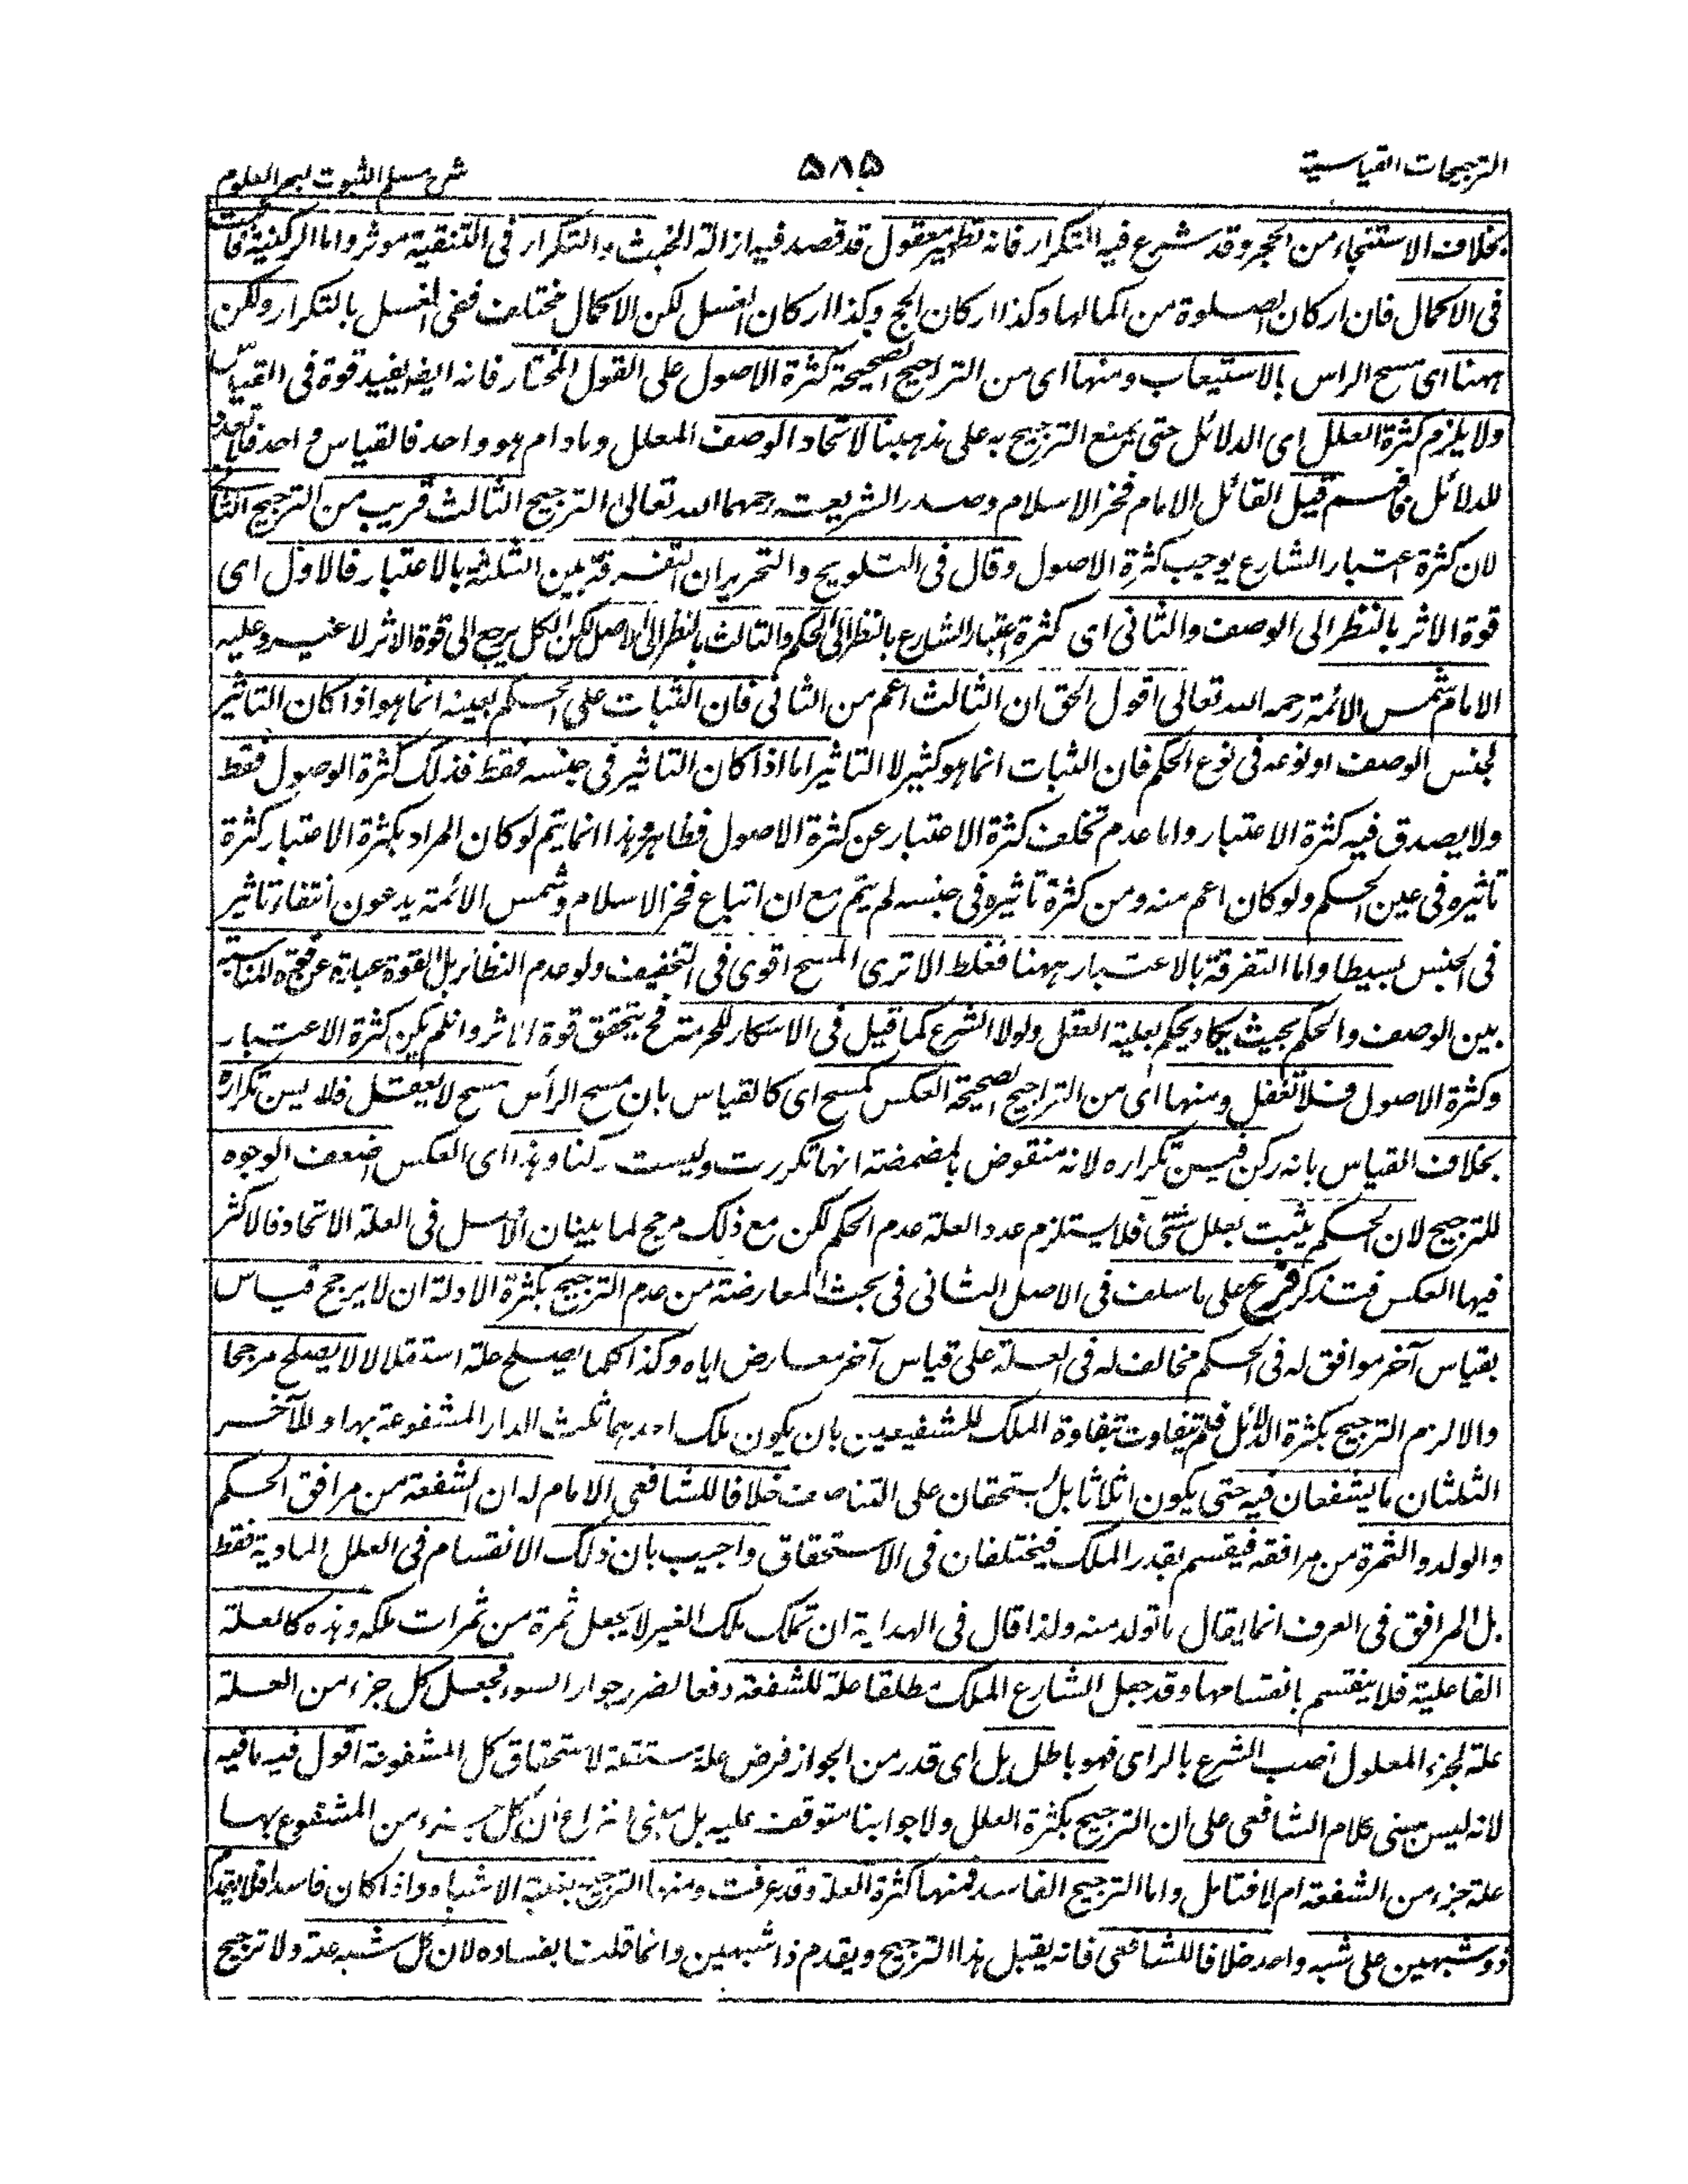 الترجیحات القیاسیة
۵۸۵
شرح مسلم الثبوت لبحر العلوم
بخلاف الاستنجاء من الحجر وقد شرع فیه التکرار فانه تطهیر معقول قد قصد فیه ازالة الخبث والتکرار فی التنقیة موثر واما الرکنیة فاثبت
فی الاکمال فان ارکان الصلوة من اکمالها وکذا ارکان الحج وکذا ارکان الغسل لکن الاکمال مختلف ففی الغسل بالتکرار ولکن
ههنا ای مسح الراس بالاستیعاب ومنها ای من التراجیح الصحیحة کثرة الاصول علی القول المختار فانه ایضا یفید قوة فی القیاس
ولا یلزم کثرة العلل ای الدلائل حتی یمنع الترجیح به علی مذهبنا لاتحاد الوصف المعلل وما دام هو واحد فالقیاس واحد فلا تعدد
للدلائل فافهم قیل القائل الامام فخر الاسلام وصدر الشریعت رحمهما الله تعالی الترجیح الثالث قریب من الترجیح الثانی
لان کثرة اعتبار الشارع یوجب کثرة الاصول وقال فی التلویح والتحریر ان التفرقة بین الثلثة بالاعتبار فالاول ای
قوة الاثر بالنظر الی الوصف والثانی ای کثرة اعتبار الشارع بالنظر الی الحکم والثالث بالنظر الی الاصل لکن الکل یرجع الی قوة الاثر لا غیر وعلیه
الامام شمس الائمة رحمه الله تعالی اقول الحق ان الثالث اعم من الثانی فان الثبات علی الحکم بعینه انما هو اذا کان التاثیر
لجنس الوصف او نوعه فی نوع الحکم فان الثبات انما هو کثیر لا التاثیر اما اذا کان التاثیر فی جنسه فقط فذلک کثرة الوصول فقط
ولا یصدق فیه کثرة الاعتبار واما عدم تخلف کثرة الاعتبار عن کثرة الاصول فظاهر وهذا انما یتم لو کان المراد بکثرة الاعتبار کثرة
تاثیره فی عین الحکم ولو کان اعم منه ومن کثرة تاثیره فی جنسه لم یتم مع ان اتباع فخر الاسلام وشمس الائمة یدعون انتفاء تاثیر
فی الجنس بسیطا واما التفرقة بالاعتبار ههنا فغلط الا تری المسح اقوی فی التخفیف ولو عدم النظائر بل القوة عبارة عن قوة المناسبة
بین الوصف والحکم بحیث یکاد یحکم بعلیة العقل ولولا الشرع کما قیل فی الاسکار للحرمة فح یتحقق قوة الاثر وان لم یکن کثرة الاعتبار
وکثرة الاصول فلا تغفل ومنها ای من التراجیح الصحیحة العکس کمسح ای کالقیاس بان مسح الرأس مسح لا یعقل فلا یسن تکراره
بخلاف القیاس بانه رکن فیسن تکراره لانه منقوض بالمضمضة انها تکررت ولیست رکنا وهذا ای العکس اضعف الوجوه
للترجیح لان الحکم یثبت بعلل شتی فلا یستلزم عدد العلة عدم الحکم لکن مع ذلک مرجح لما بینا ان الاصل فی العلة الاتحاد فالاکثر
فیها العکس فتذکر فرع علی ما سلف فی الاصل الثانی فی بحث المعارضة من عدم الترجیح بکثرة الادلة ان لا یرجح قیاس
بقیاس آخر موافق له فی الحکم مخالف له فی العلة علی قیاس آخر معارض ایاه وکذا کلما یصلح علة استقلالا لا یصلح مرجحا
والا لزم الترجیح بکثرة الدلائل فلم یتفاوت بتفاوة الملک للشفیعین بان یکون ملک احدهما ثلث الدار المشفوعة بها وللآخر
الثلثان ما یشفعان فیه حتی یکون اثلاثا بل یستحقان علی التناصف خلافا للشافعی الامام له ان الشفعة من مرافق الحکم
والولد والثمرة من مرافقه فیقسم بقدر الملک فیختلفان فی الاستحقاق واجیب بان ذلک الانقسام فی العلل المادیة فقط
بل المرافق فی العرف انما یقال ما تولد منه ولذا قال فی الهدایة ان تملک ملک الغیر لا یجعل ثمرة من ثمرات ملکه وهذه کالعلة
الفاعلیة فلا ینقسم بانقسامها وقد جعل الشارع الملک مطلقا علة للشفعة دفعا لضرر جوار السوء فجعل کل جزء من العلة
علة لجزء المعلول نصب الشرع بالرای فهو باطل بل ای قدر من الجواز فرض علة مستقلة لاستحقاق کل المشفوعة اقول فیه ما فیه
لانه لیس مبنی کلام الشافعی علی ان الترجیح بکثرة العلل ولا جوابنا متوقف علیه بل مبنی النزاع ان کل جزء من المشفوع بها
علة جزء من الشفعة ام لا فتامل واما الترجیح الفاسد فمنها کثرة العلة وقد عرفت ومنها الترجیح بغلبة الاشباه واذا کان فاسدا فلا یقدم
ذو شبهین علی شبه واحد خلافا للشافعی فانه یقبل هذا الترجیح ویقدم ذا شبهین وانما قلنا بفساده لان کل شبه علة ولا ترجیح